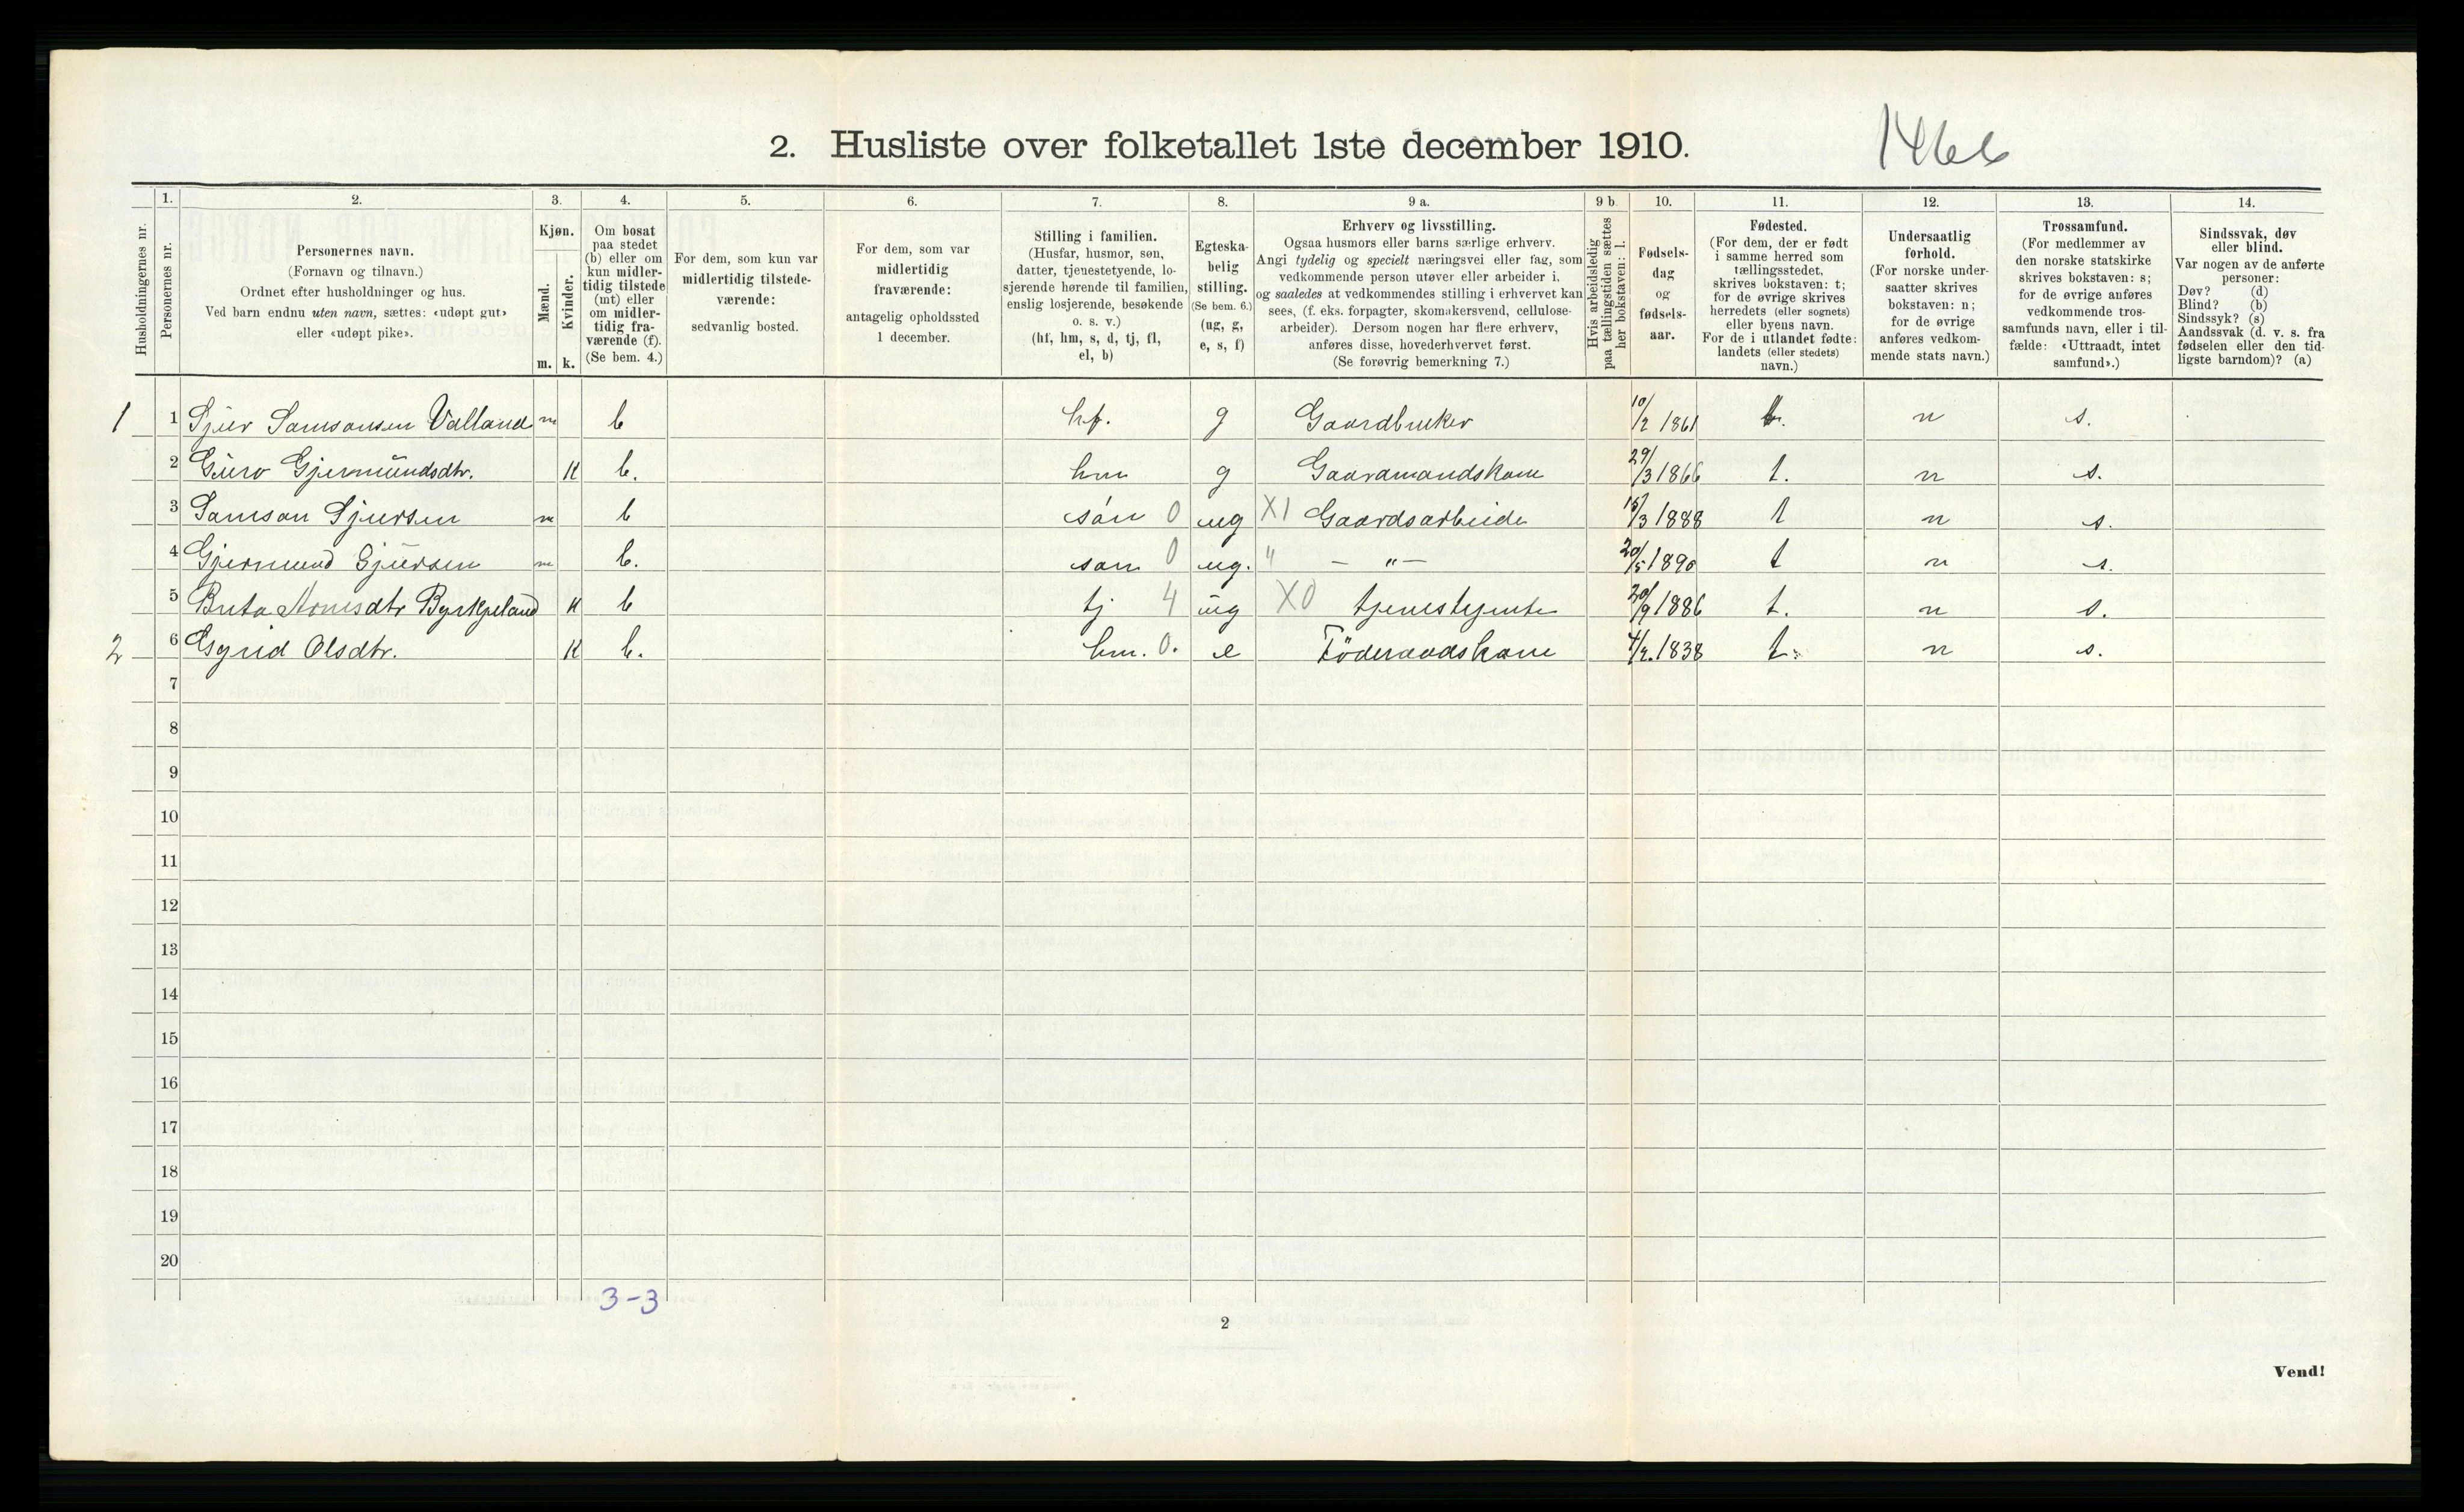 2. Husliste over folketallet 1ste december 1910.
1466
Husholdningernes nr.
1.
Personernes nr.
2.
Personernes navn.
(Fornavn og tilnavn.)
Ordnet efter husholdninger og hus.
Ved barn endnu uten navn, sættes: «udøpt gut»
eller «udøpt pike».
3.
Kjøn.
Mænd.
Kvinder.
m. k.
4.
Om bosat
paa stedet
(b) eller om
kun midler-
tidig tilstede
(mt) eller
om midler-
tidig fra-
værende (f).
(Se bem. 4.)
5.
For dem, som kun var
midlertidig tilstede-
værende:
sedvanlig bosted.
6.
For dem, som var
midlertidig
fraværende:
antagelig opholdssted
1 december.
7.
Stilling i familien.
(Husfar, husmor, søn,
datter, tjenestetyende, lo-
sjerende hørende til familien,
enslig losjerende, besøkende
o. s. v.)
(hf, hm, s, d, tj, fl,
el, b)
8.
Egteska-
belig
stilling.
(Se bem. 6.)
(ug, g,
e, s, f)
9 a.
Erhverv og livsstilling.
Ogsaa husmors eller barns særlige erhverv.
Angi tydelig og specielt næringsvei eller fag, som
vedkommende person utøver eller arbeider i,
og saaledes at vedkommendes stilling i erhvervet kan
sees, (f. eks. forpagter, skomakersvend, cellulose-
arbeider). Dersom nogen har flere erhverv,
anføres disse, hovederhvervet først.
(Se forøvrig bemerkning 7.)
9 b.
Hvis arbeidsledig
paa tællingstiden sættes
her bokstaven: l.
10.
Fødsels-
dag
og
fødsels-
aar.
11.
Fødested.
(For dem, der er født
i samme herred som
tællingsstedet,
skrives bokstaven: t;
for de øvrige skrives
herredets (eller sognets)
eller byens navn.
For de i utlandet fødte:
landets (eller stedets)
navn.)
12.
Undersaatlig
forhold.
(For norske under-
saatter skrives
bokstaven: n;
for de øvrige
anføres vedkom-
mende stats navn.)
13.
Trossamfund.
(For medlemmer av
den norske statskirke
skrives bokstaven: s;
for de øvrige anføres
vedkommende tros-
samfunds navn, eller i til-
fælde: «Uttraadt, intet
samfund».)
14.
Sindssvak, døv
eller blind.
Var nogen av de anførte
personer:
Døv? (d)
Blind? (b)
Sindssyk? (s)
Aandssvak (d. v. s. fra
fødselen eller den tid-
ligste barndom)? (a)
1 1 Sjur Samsonsen Valland m b hf. g Gaardbruker 10/2 1861 t. n s.
2 Guro Gjermundsdtr. K b. hm g Gaaramandskone 29/3 1866 t. n s.
3 Samson Sjursen m b søn 0 ug X1 Gaardsarbeide 15/3 1888 t n s.
4 Gjermund Sjursen m b. søn 0 ug. " — " — 20/5 1890 t n s.
5 Brita Arnesdtr Byrkjeland K b tj 4 ug X0 tjenestejente 20/9 1886 t. n s.
2 6 Gyrid Olsdtr. K b. hm. 0. e Föderaadskone 4/2. 1838 t. n s.
7
8
9
10
11
12
13
14
15
16
17
18
19
20
3-3
2
Vend!